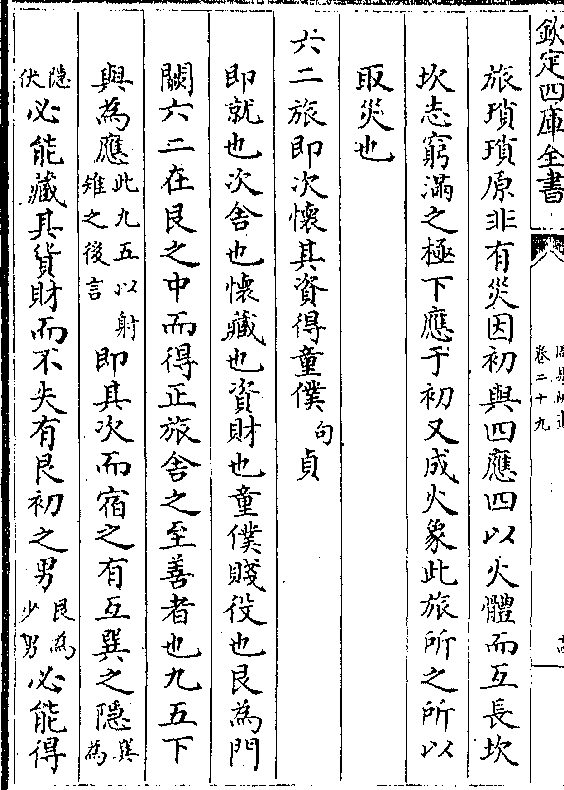 欽定四庫全書
卷二十九
旅瑣瑣原非有災因初與四應四以火體而互長坎
坎志窮滿之極下應于初又成火象此旅所之所以
取災也
六二旅即次懷其資得童僕句貞
即就也次舍也懷藏也資財也童僕賤役也艮為門
闕六二在艮之中而得正旅舍之至善者也九五下
與為應此九五以射雉之後言即其次而宿之有互巽之隱巽為
隱伏必能藏其貨財而不失有艮初之男艮為少男必能得